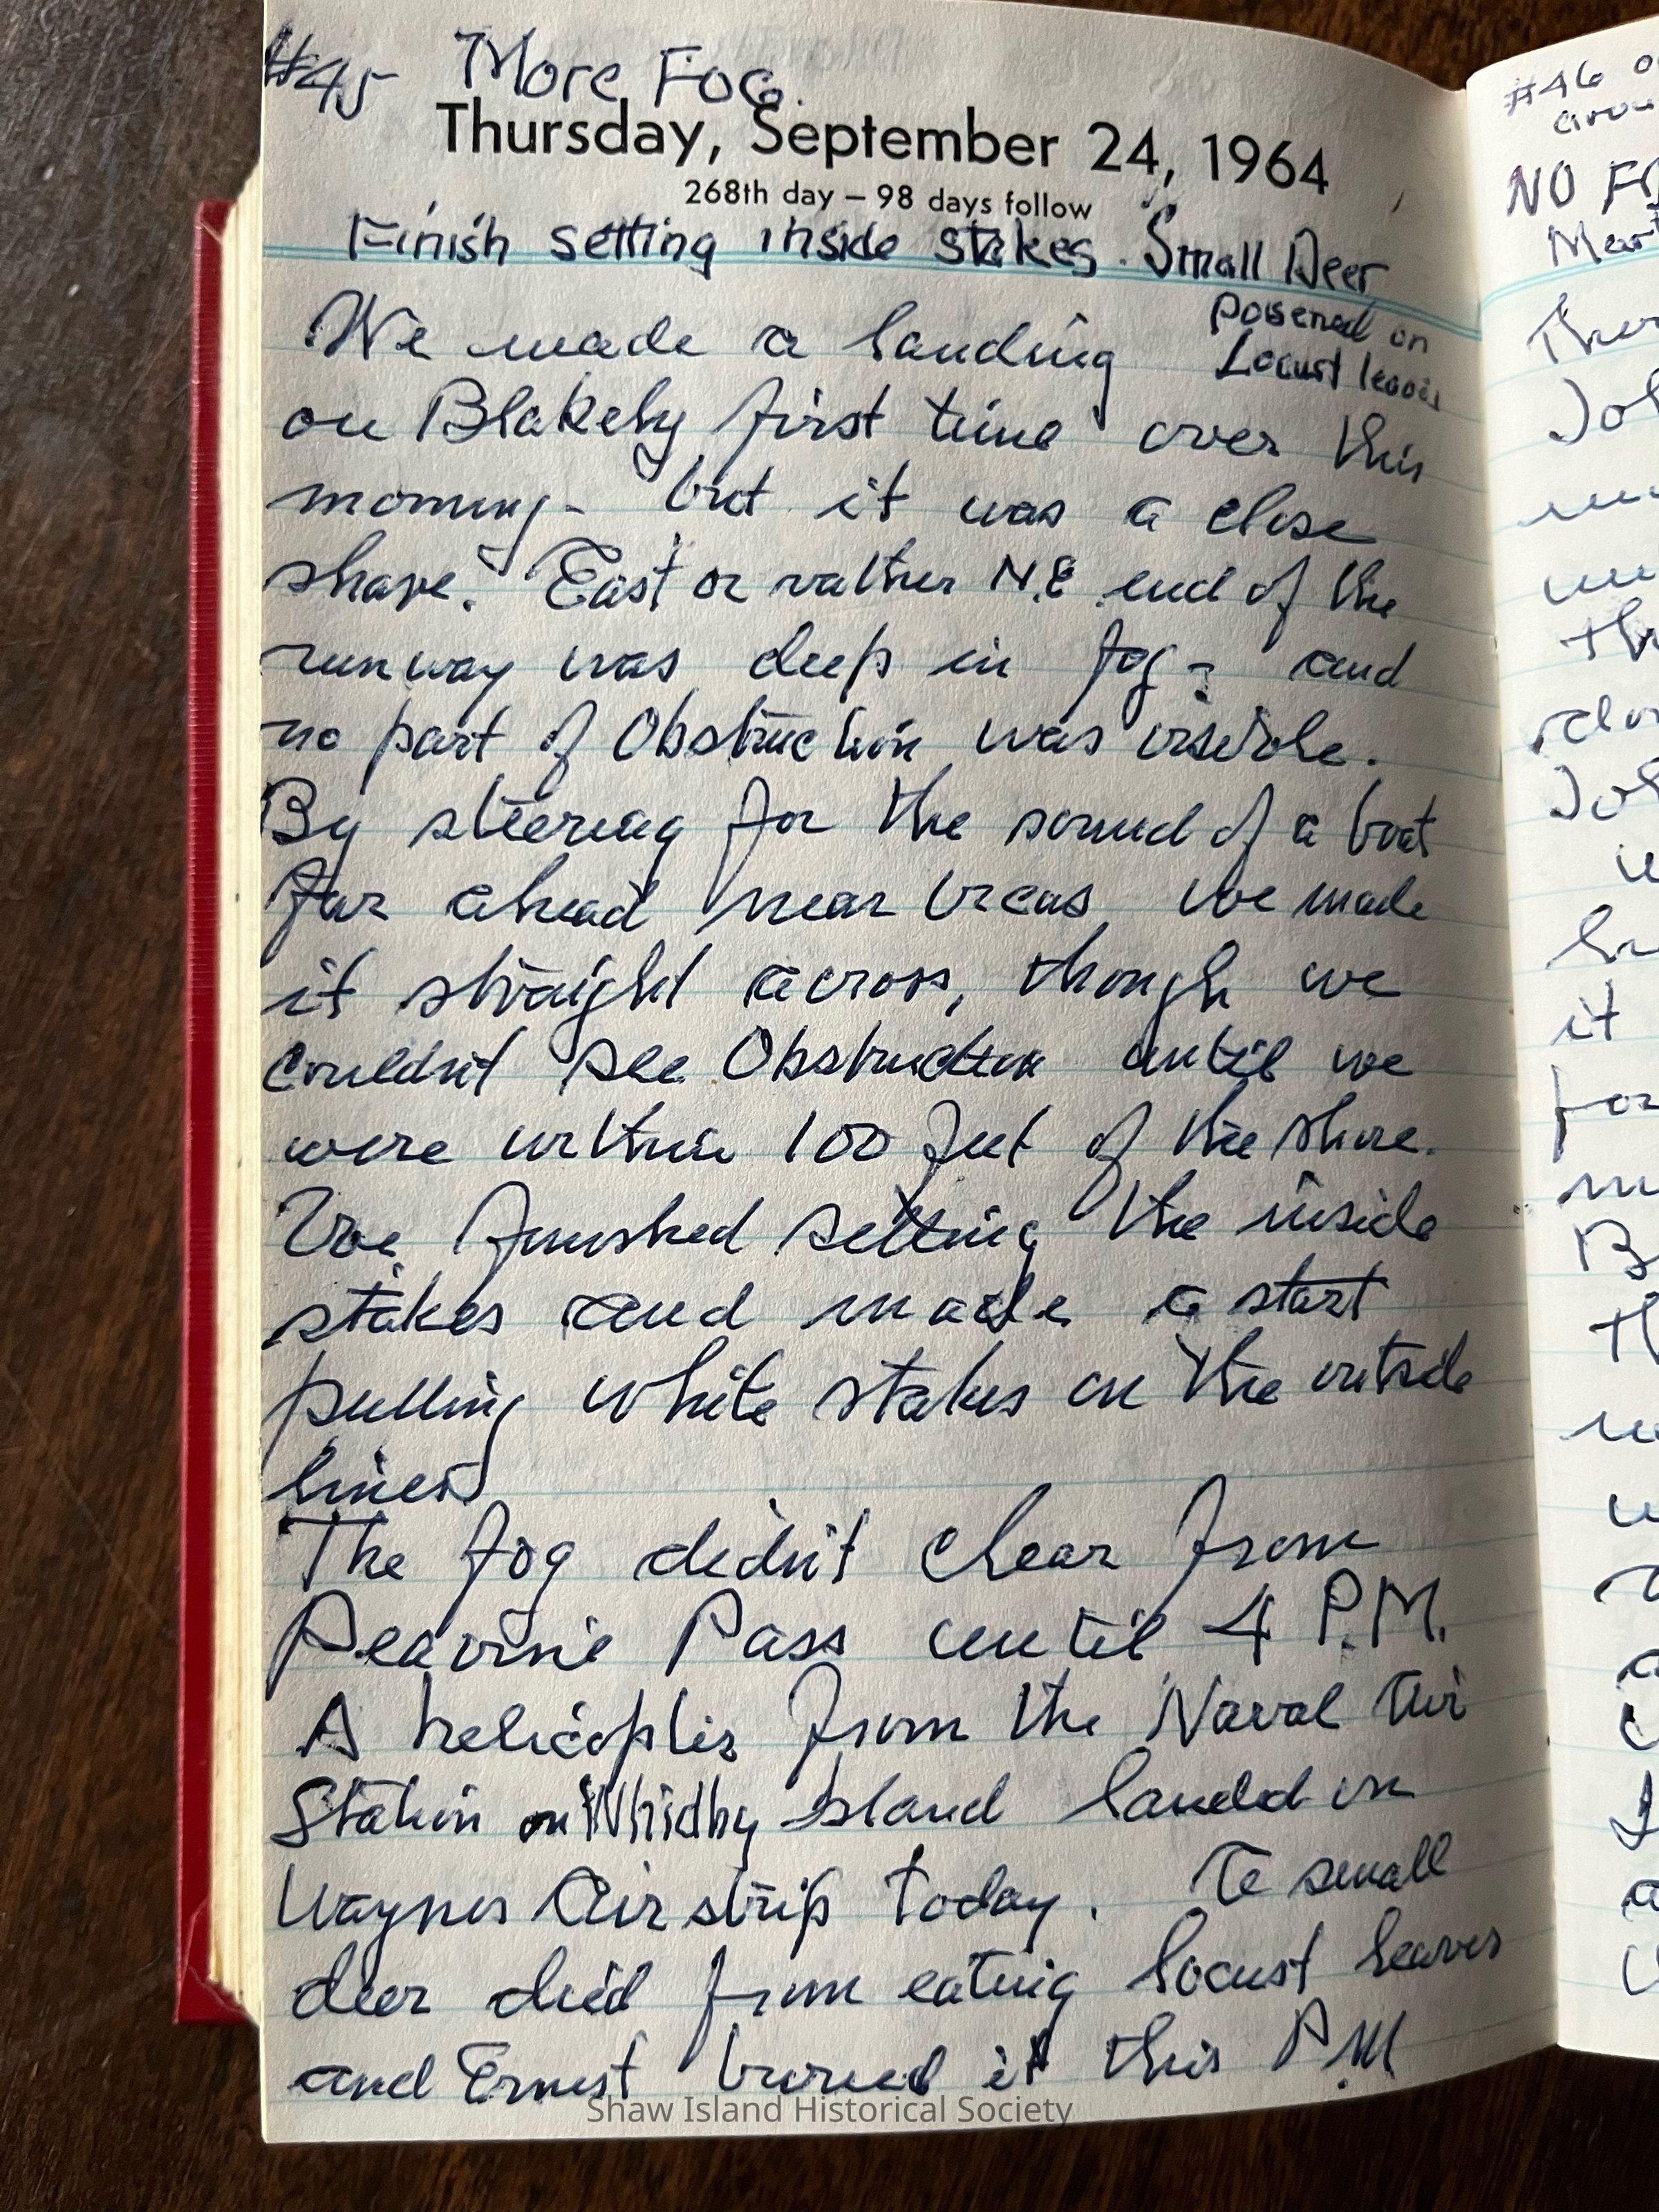 #45 More Fog.
Thursday, September 24, 1964
268th day — 98 days follow
Finish setting inside stakes. Small Deer
poisened on
Locust leaves
We made a landing
on Blakely first time over this
morning - but it was a close
shave. East or rather N.E. end of the
runway was deep in fog - and
no part of Obstruction was visible.
By steering for the sound of a boat
far ahead near Orcas we made
it straight across, though we
couldn't see Obstruction until we
were within 100 feet of the shore.
We finished setting the inside
stakes and made a start
pulling white stakes on the outside
lines
The fog didn't clear from
Peavine Pass until 4 P.M.
A helicopter from the Naval Air
Station on Whidby Island landed on
Waynes Air strip today. Te small
deer died from eating locust leaves
and Ernest buried it this P.M
#46
NO
it
Shaw Island Historical Society